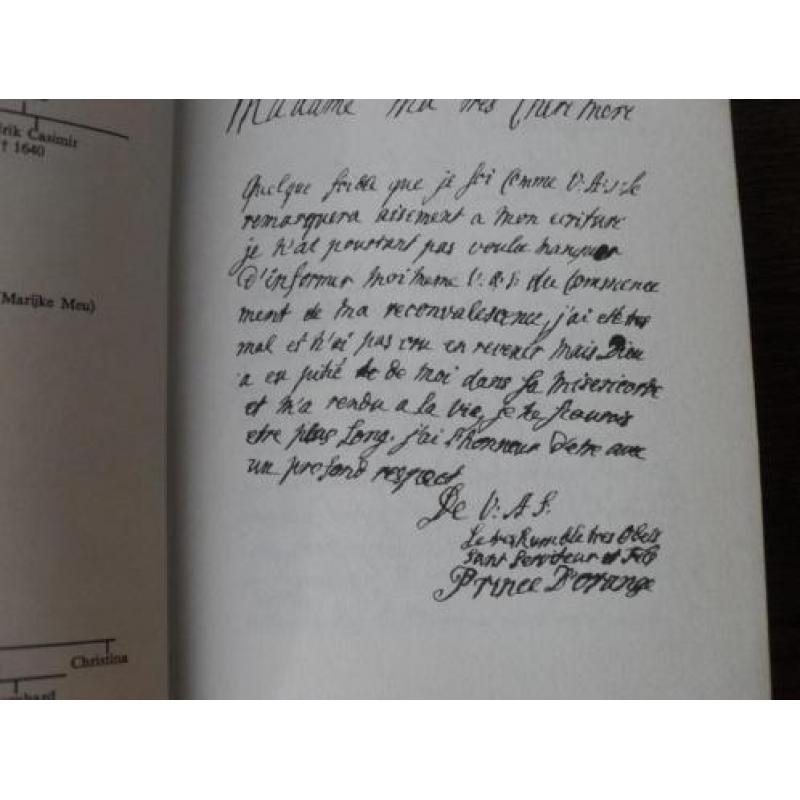 rik Casimir
† 1640
(Marijke Meu)
Christina
Madame Ma Tres Chere Mere
Quelque foible que je soi comme V: A: S: le
remarquera aisement a mon ecriture
je n'ai pourtant pas voulu manquer
D'informer moi meme V. A. S. du commence
ment de ma reconvalescence, j'ai eté tres
mal et n'ai pas cru en revenir mais Dieu
a eu pitié de de moi dans sa misericorde
et m'a rendu a la vie, je ne scaurois
etre plus long, j'ai l'honneur d'etre avec
un profond respect
De V: A S:
Le tres humble tres Obeis
sant Serviteur et Fils
Prince D'orange